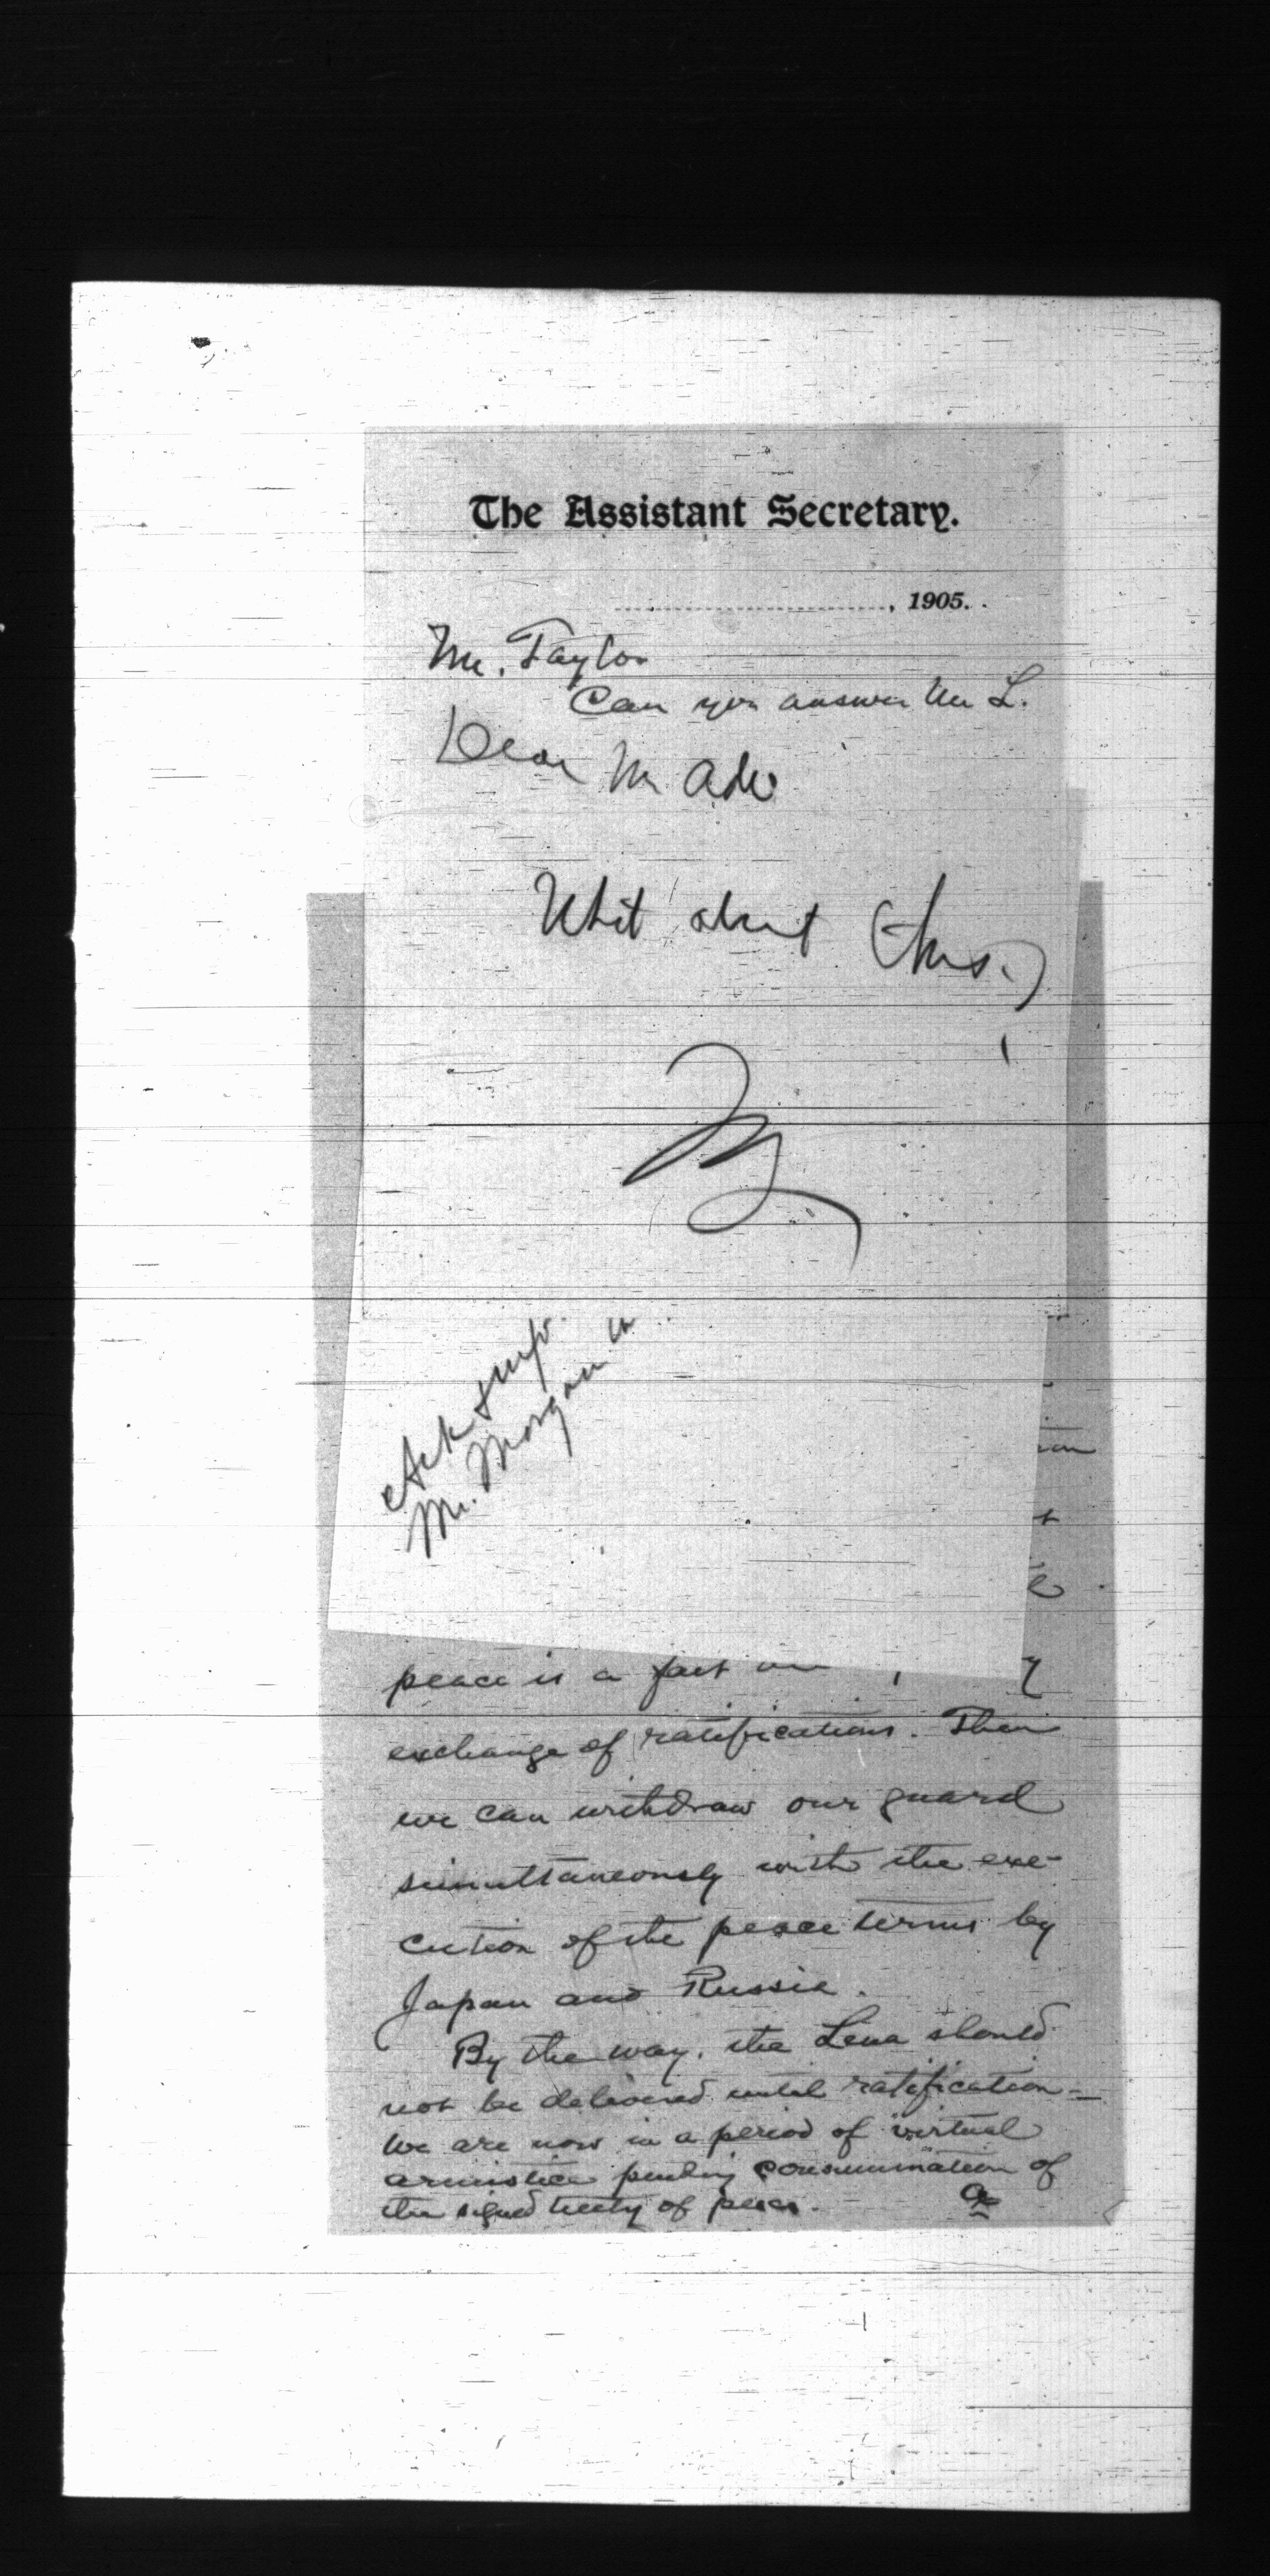 The Assistant Secretary.
, 1905.
Mr. Taylor
Can you answer Mr L.
Dear Mr Adee
What about this?
Ack & inf.
Mr. Morgan
peace is a fact
exchange of ratifications. Then
we can withdraw our guard
simultaneously with the exe-
cution of the peace terms by
Japan and Russia.
By the way, the Lena should
not be delivered until ratification—
We are now in a period of virtual
armistice pending consummation of
the signed treaty of peace.
A